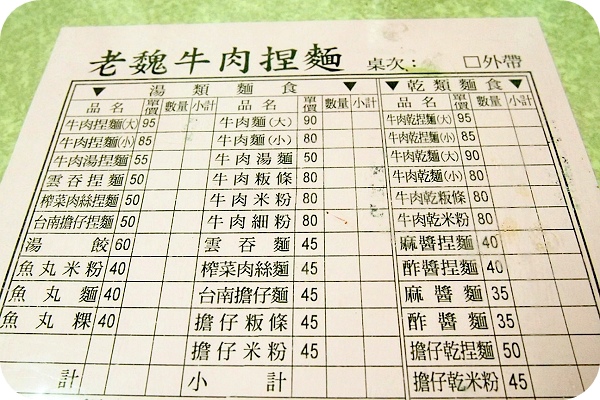 老魏牛肉捏麵 桌次： □外帶
▼ 湯類麵食 ▼ ▼ 乾類麵食 ▼
品名 單價 數量 小計 品名 單價 數量 小計 品名 單價 數量 小計
牛肉捏麵(大) 95 牛肉麵(大) 90 牛肉乾捏麵(大) 95
牛肉捏麵(小) 85 牛肉麵(小) 80 牛肉乾捏麵(小) 85
牛肉湯捏麵 55 牛肉湯麵 50 牛肉乾麵(大) 90
雲吞捏麵 50 牛肉粄條 80 牛肉乾麵(小) 80
榨菜肉絲捏麵 50 牛肉米粉 80 牛肉乾粄條 80
台南擔仔捏麵 50 牛肉細粉 80 牛肉乾米粉 80
湯餃 60 雲吞麵 45 麻醬捏麵 40
魚丸米粉 40 榨菜肉絲麵 45 酢醬捏麵 40
魚丸麵 40 台南擔仔麵 45 麻醬麵 35
魚丸粿 40 擔仔粄條 45 酢醬麵 35
擔仔米粉 45 擔仔乾捏麵 50
計 小計 擔仔乾米粉 45